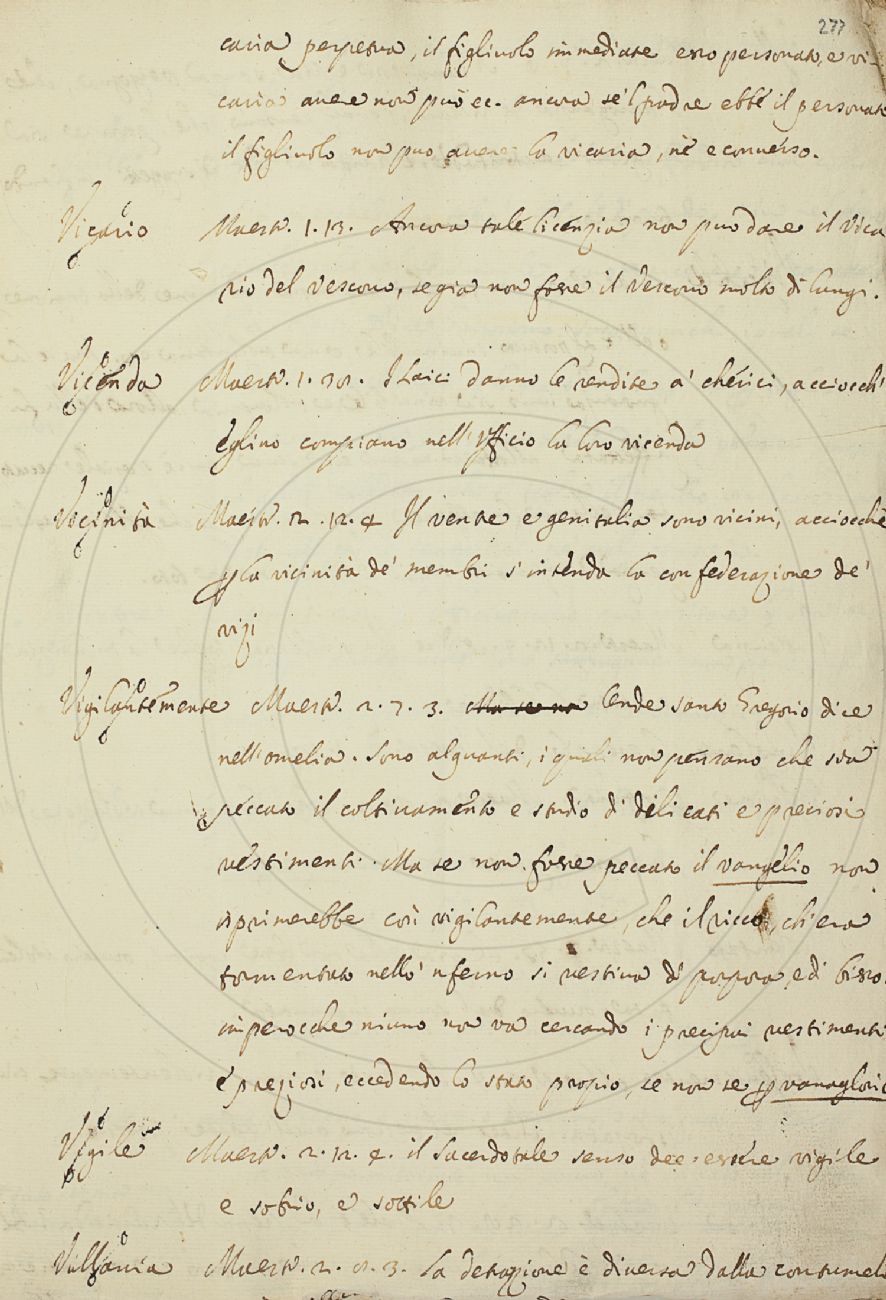 277
caria perpetua, il figliuolo immediate esso personato, e vi-
caria avere non può ec. ancora se 'l padre ebbe il personato
il figliuolo non può avere la vicaria, nè e converso.
Vicario Maestr. 1. 13. Ancora tale licenzia non può dare il vica
rio del Vescovo, se gia non fosse il Vescovo molto di lungi.
Vicenda Maestr. 1. I Laici danno le rendite a' cherici, acciocch'
eglino compiano nell'ufficio la loro vicenda
Vicinità Maestr. 2. 12. 4 Il ventre e genitalia sono vicini, acciocchè
p la vicinità de' membri s'intenda la confederazione de'
vizi
Vigilantemente Maestr. 2. 7. 3. Ma se non Onde santo Gregorio dice
nell'omelia. Sono alquanti, i quali non pensano che sia
peccato il coltivamento e studio di delicati e preciosi
vestimenti. Ma se non fosse peccato il vangelio non
isprimerebbe così vigilantemente, che il ricco, ch'era
tormentato nello 'nferno si vestiva di porpora, e di bisso.
imperocchè niuno non va cercando i precipui vestimenti
e preziosi, eccedendo lo stato propio, se non se p vanagloria
Vigile Maestr. 2. 12. 4. il sacerdotale senso dee essere vigile
e sobrio, e sottile
Villania Maestr. 2. 8. 3. La detrazione è diversa dalla contumeli